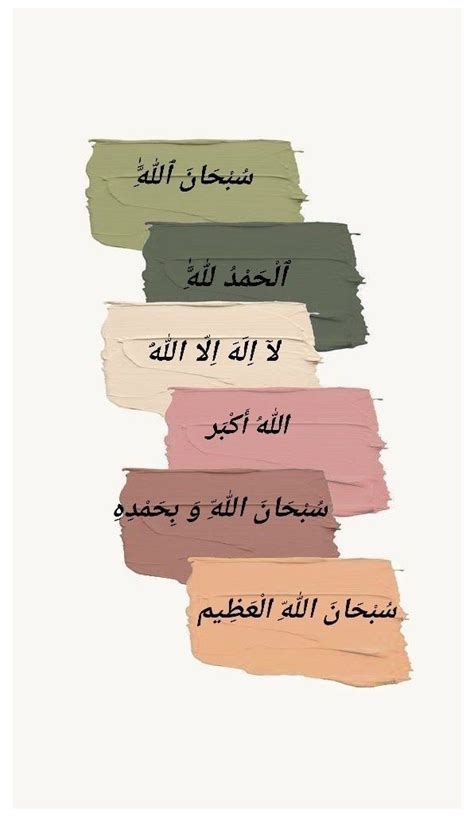 سُبْحَانَ ٱللَّٰهِ
ٱلْحَمْدُ لِلَّٰهِ
لَآ اِلَهَ اِلّا اللهُ
اللهُ أَكْبَر
سُبْحَانَ اللهِّ وَ بِحَمْدِهِ
سُبْحَانَ اللهِّ الْعَظِيم